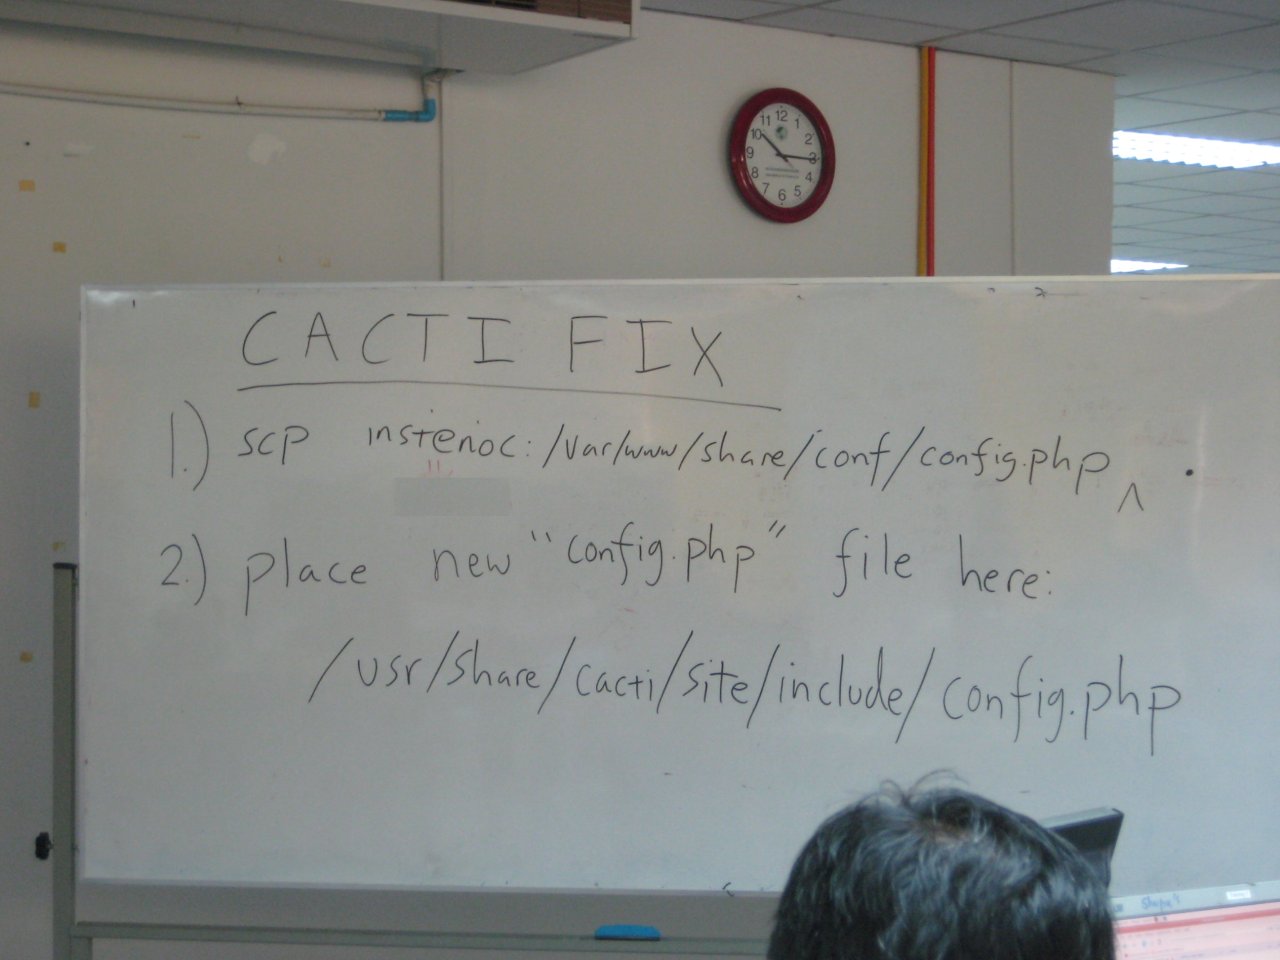 12
1
2
3
4
5
6
7
8
9
10
11
CACTI FIX
1.) scp inst@noc:/var/www/share/conf/config.php ^ .
2.) place new "config.php" file here:
/usr/share/cacti/site/include/config.php